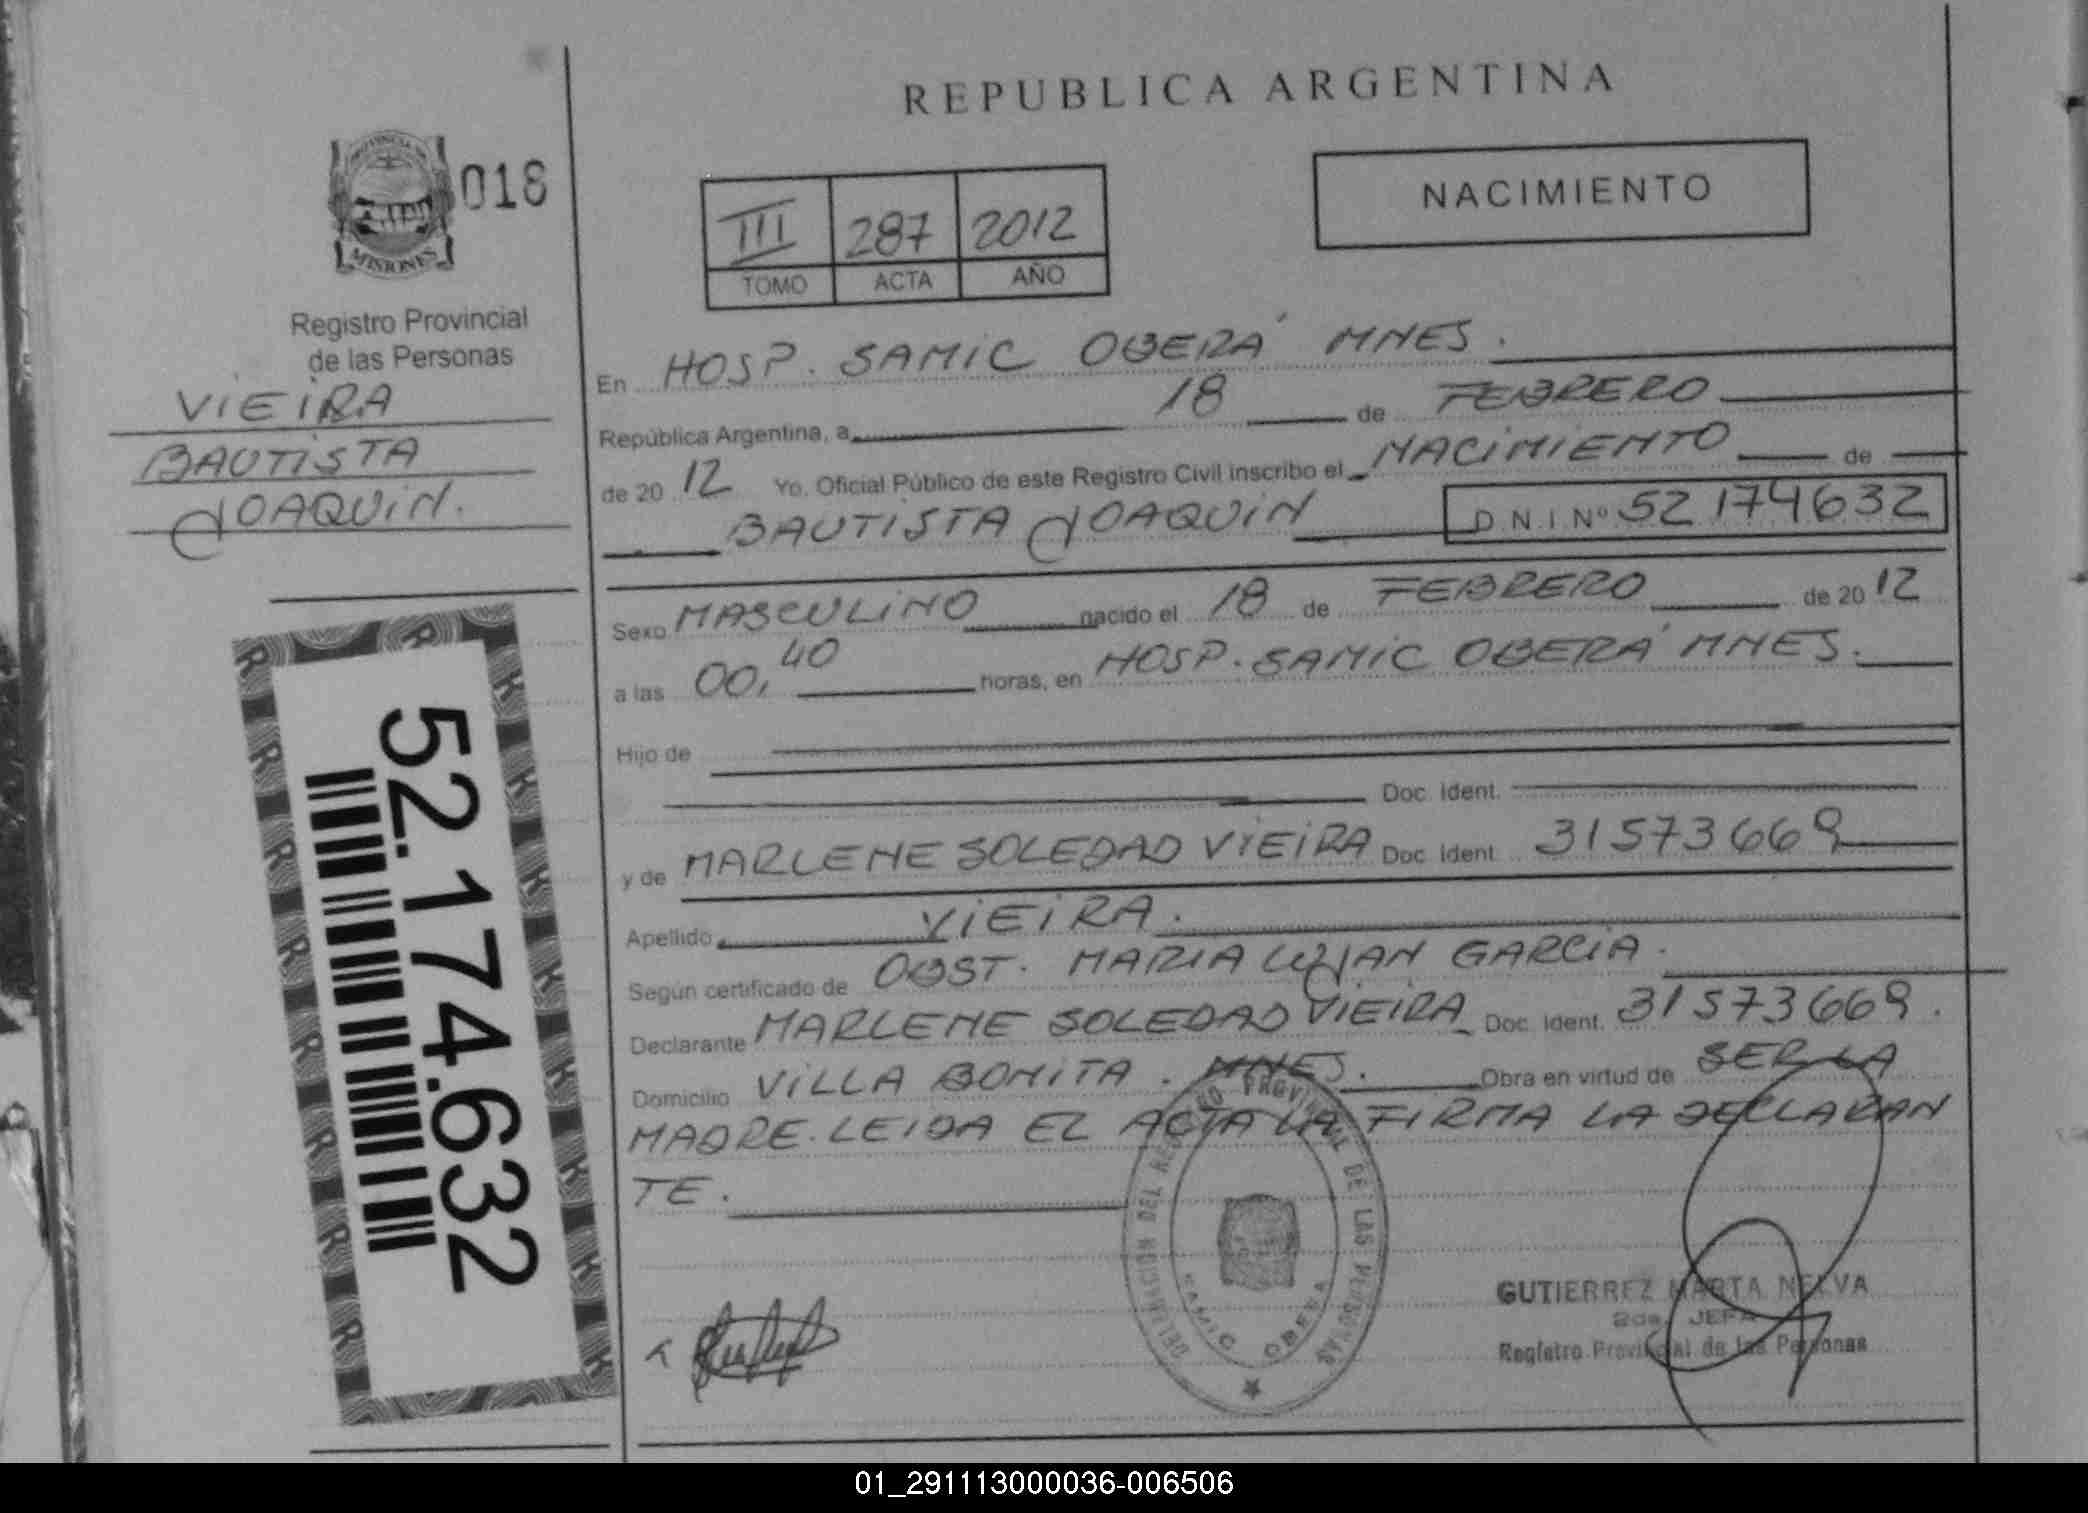 REPUBLICA ARGENTINA
NACIMIENTO
PROVINCIA DE
MISIONES
018
III 287 2012
TOMO ACTA AÑO
Registro Provincial
de las Personas
VIEIRA
BAUTISTA
JOAQUIN.
52.174.632
En HOSP. SAMIC OBERÁ MNES.
República Argentina, a 18 de FEBRERO
de 20 12 Yo, Oficial Público de este Registro Civil inscribo el NACIMIENTO de
BAUTISTA JOAQUIN D.N.I Nº 52174632
Sexo MASCULINO nacido el 18 de FEBRERO de 20 12
a las 00,40 horas, en HOSP. SAMIC OBERÁ MNES.
Hijo de
Doc. Ident.
y de MARLENE SOLEDAD VIEIRA Doc. Ident. 31573669
Apellido VIEIRA.
Según certificado de OBST. MARIA LUJAN GARCIA.
Declarante MARLENE SOLEDAD VIEIRA Doc. Ident. 31573669.
Domicilio VILLA BONITA. MNES. Obra en virtud de SER LA
MADRE. LEIDA EL ACTA LA FIRMA LA DECLARAN
TE.
DELEGACION DEL REGISTRO PROVINCIAL DE LAS PERSONAS
SAMIC OBERA
GUTIERREZ MARTA NELVA
2da. JEFA
Registro Provincial de las Personas
01_291113000036-006506